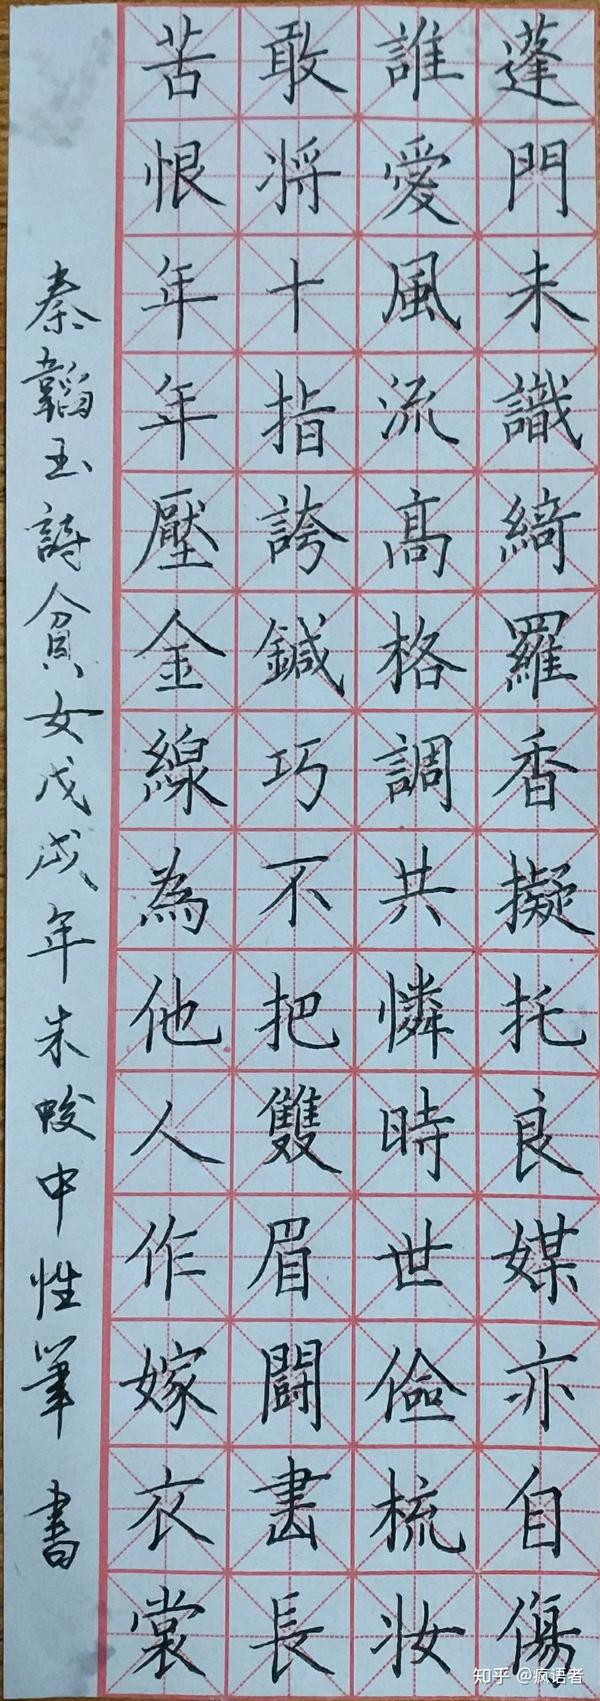 蓬門未識綺羅香擬托良媒亦自傷
誰愛風流高格調共憐時世儉梳妝
敢將十指誇鍼巧不把雙眉鬪畫長
苦恨年年壓金線為他人作嫁衣裳
秦韜玉詩貧女戊戌年朱峻中性筆書
知乎 @疯语者